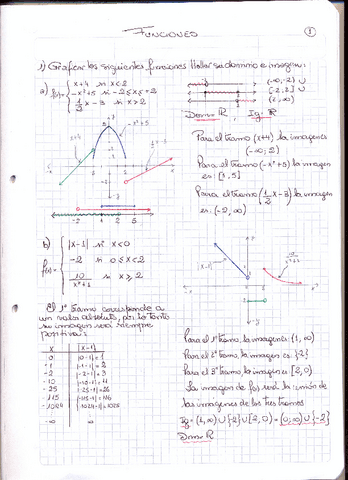 FUNCIONES
1
1) Graficar las siguientes funciones. Hallar su dominio e imagen:
a) f(x) = { x+4 si x<2
-x²+5 si -2≤x≤2
1/2 x - 3 si x>2
(-∞,-2) ∪
[-2,2] ∪
(2,∞)
Dom: ℝ, Ig: ℝ
x+4
-x²+5
Para el tramo (x+4) la imagen es
(-∞; 2)
Para el tramo (-x²+5) la imagen
es: [1, 5]
Para el tramo (1/2 x - 3) la imagen
es: (-2, ∞)
b) f(x) = { |x-1| si x<0
-2 si 0≤x<2
10/(x²+1) si x≥2
|x-1|
10/(x²+1)
El 1º tramo corresponde a
un valor absoluto, por lo tanto
su imagen será siempre
positiva:
x |x-1|
0 |0-1| = 1
-1 |-1-1| = 2
-2 |-2-1| = 3
-10 |-10-1| = 11
-25 |-25-1| = 26
-115 |-115-1| = 116
-1024 |-1024-1| = 1025
-∞ ∞
Para el 1º tramo, la imagen es: (1, ∞)
Para el 2º tramo, la imagen es: {-2}
Para el 3º tramo, la imagen es: [2, 0)
La imagen de f(x) será la unión de
las imagenes de los tres tramos
Ig = (1,∞) ∪ {-2} ∪ [2, 0) = (0; ∞) ∪ {-2}
Dom: ℝ